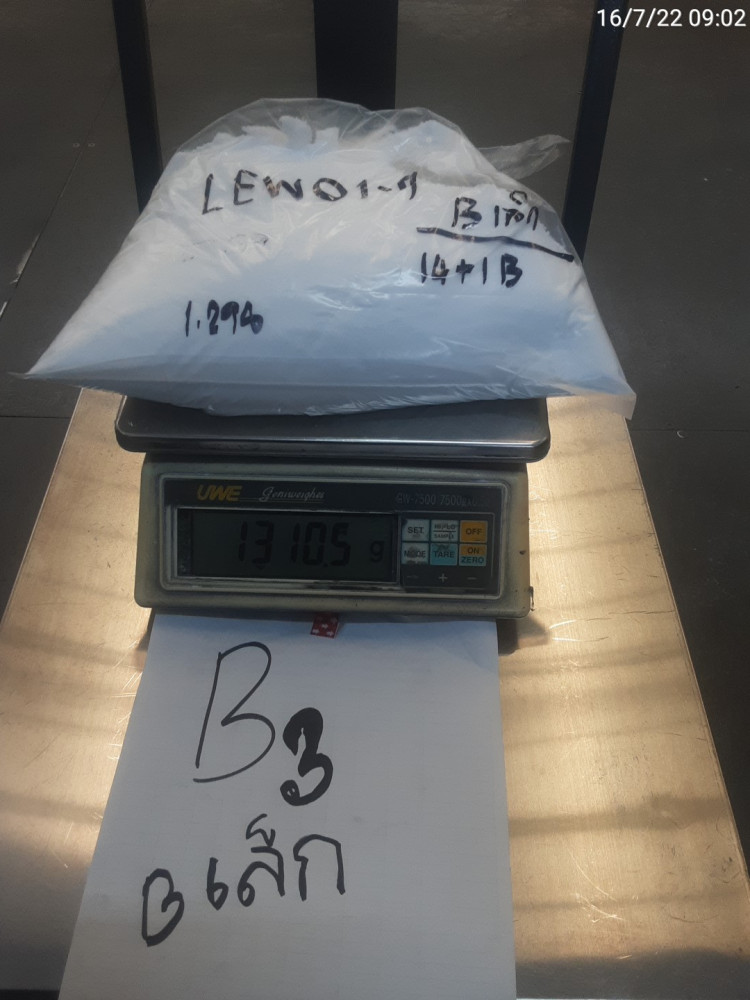 16/7/22 09:02
LEW01-9
B เล็ก
14+1B
1.296
UWE
GM-7500 7500g
1310.5 g
SET
SAMPLE
OFF
MODE
TARE
ON
ZERO
+ −
B3
B เล็ก